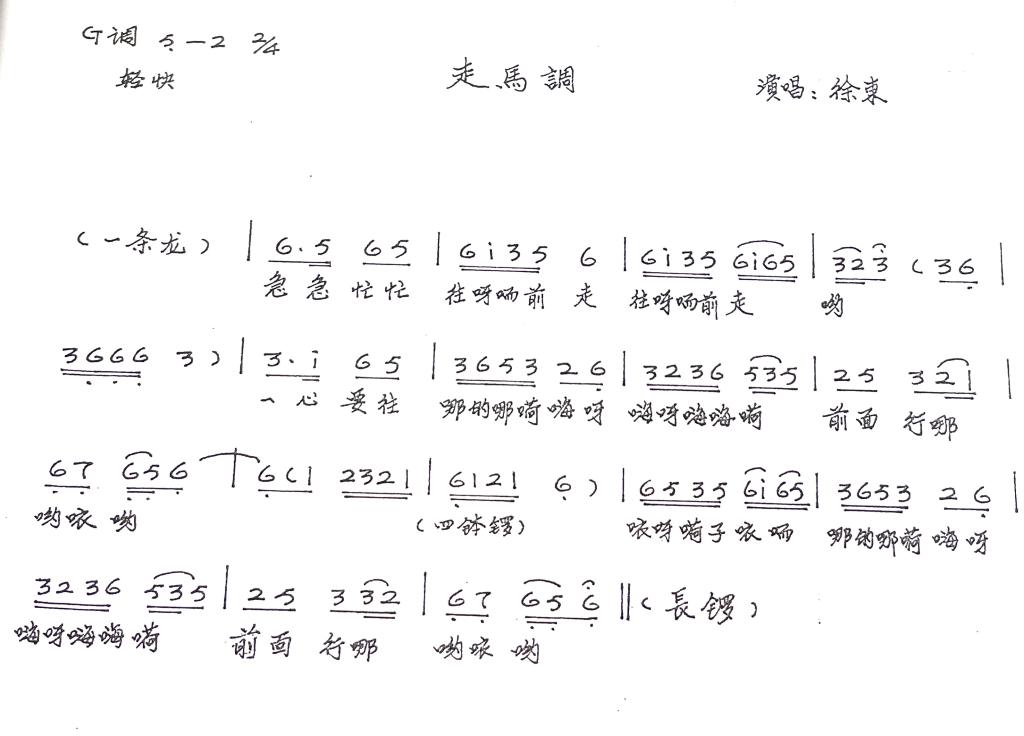 G调 5̣—2 2/4
轻快
走馬調
演唱：徐東
（一条龙） | 6.5 65 | 6i35 6 | 6i35 6i65 | 323 （36̣ |
急急忙忙 往呀哂前 走 往呀哂前走 哟
36̣6̣6̣ 3） | 3.i 65 | 3653 26̣ | 3236 535 | 25 321 |
一心要往 哪的哪嗬嗨呀 嗨呀嗨嗨嗬 前面 行哪
6̣7̣ 6̣5̣6̣ | 6̣（1 2321 | 6̣121 6̣） | 6535 6i65 | 3653 26̣ |
哟咴 哟 （四钵锣） 咴呀嗬子咴哂 哪的哪嗬 嗨呀
3236 535 | 25 332 | 6̣7̣ 6̣5̣6̣ ‖（長锣）
嗨呀嗨嗨嗬 前面 行哪 哟咴 哟